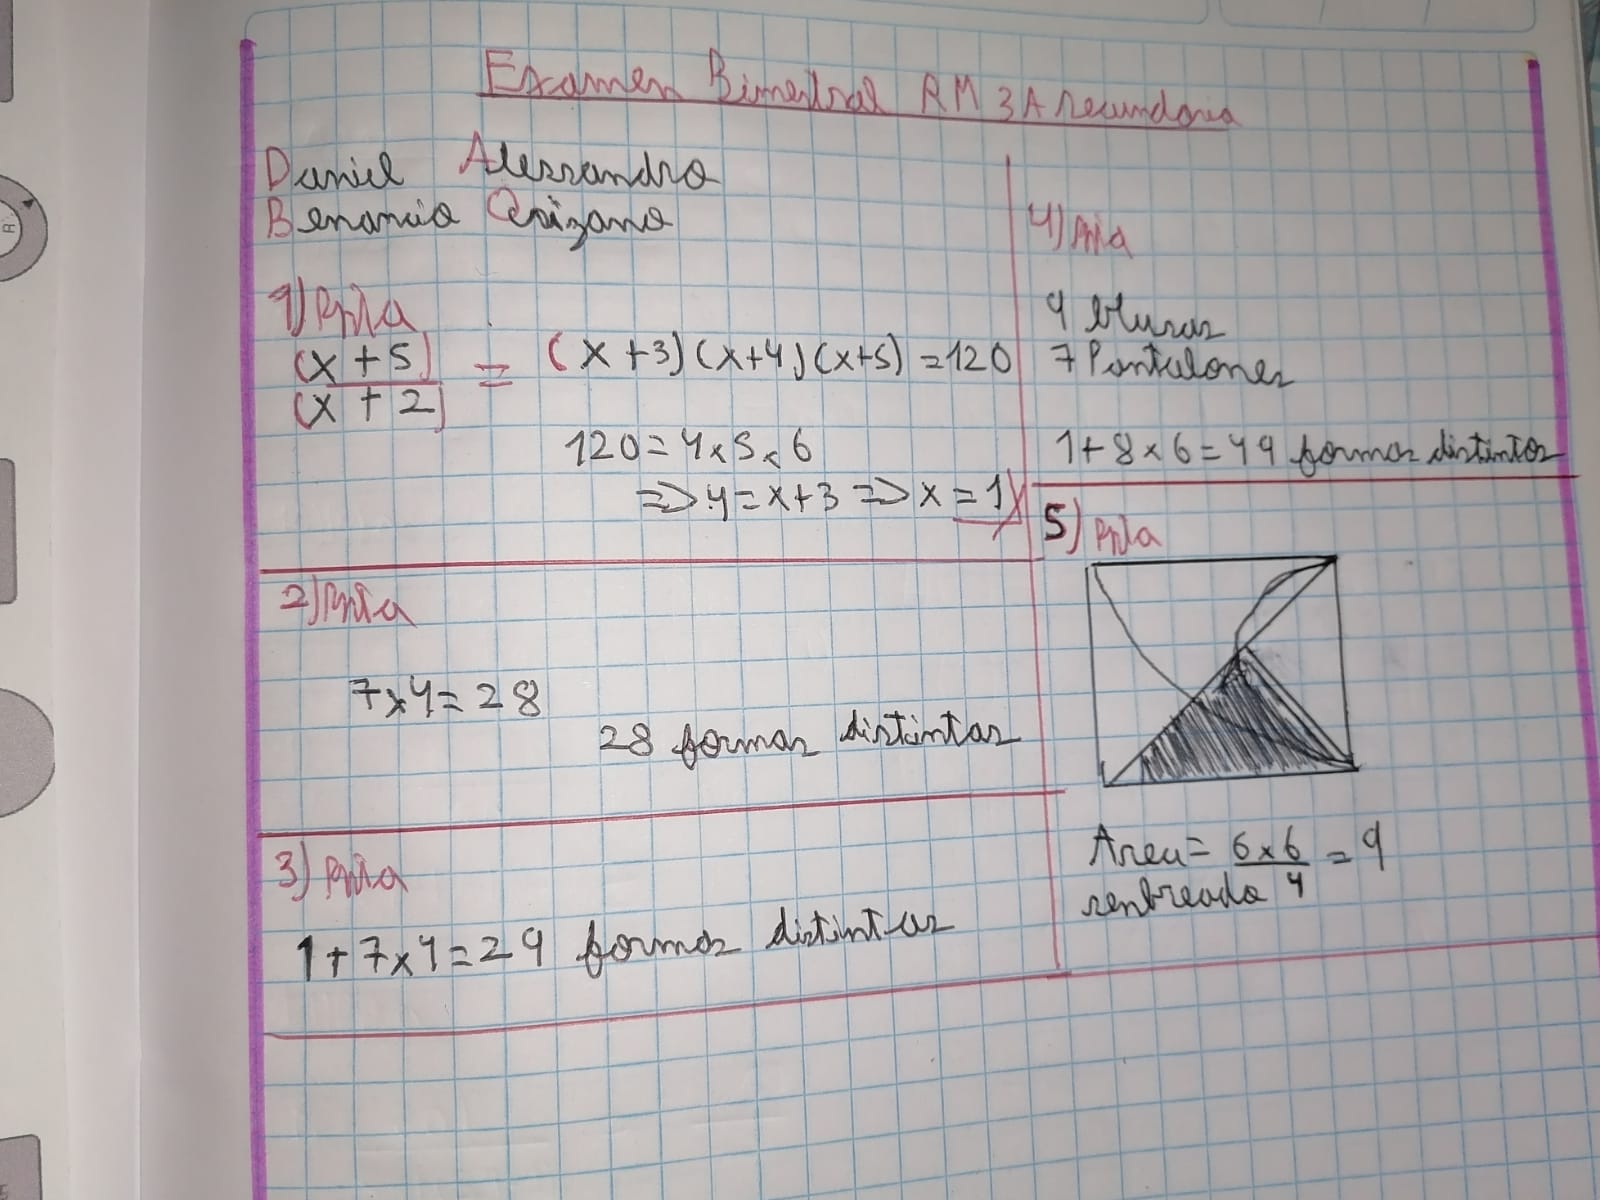 Examen Bimestral RM 3A secundaria
Daniel Alessandro
Benancio
1) Rpta
(x + 5)
(x + 2)
= (x + 3) (x+4) (x+5) = 120
120 = 4 x 5 x 6
=> 4 = x + 3 => x = 1
2) Rpta
7 x 4 = 28
28 formas distintas
3) Rpta
1 + 7 x 4 = 29 formas distintas
4) Rpta
4 blusas
7 Pantalones
1 + 8 x 6 = 49 formas distintas
5) Rpta
Area = 6 x 6 = 9
senbreada 4